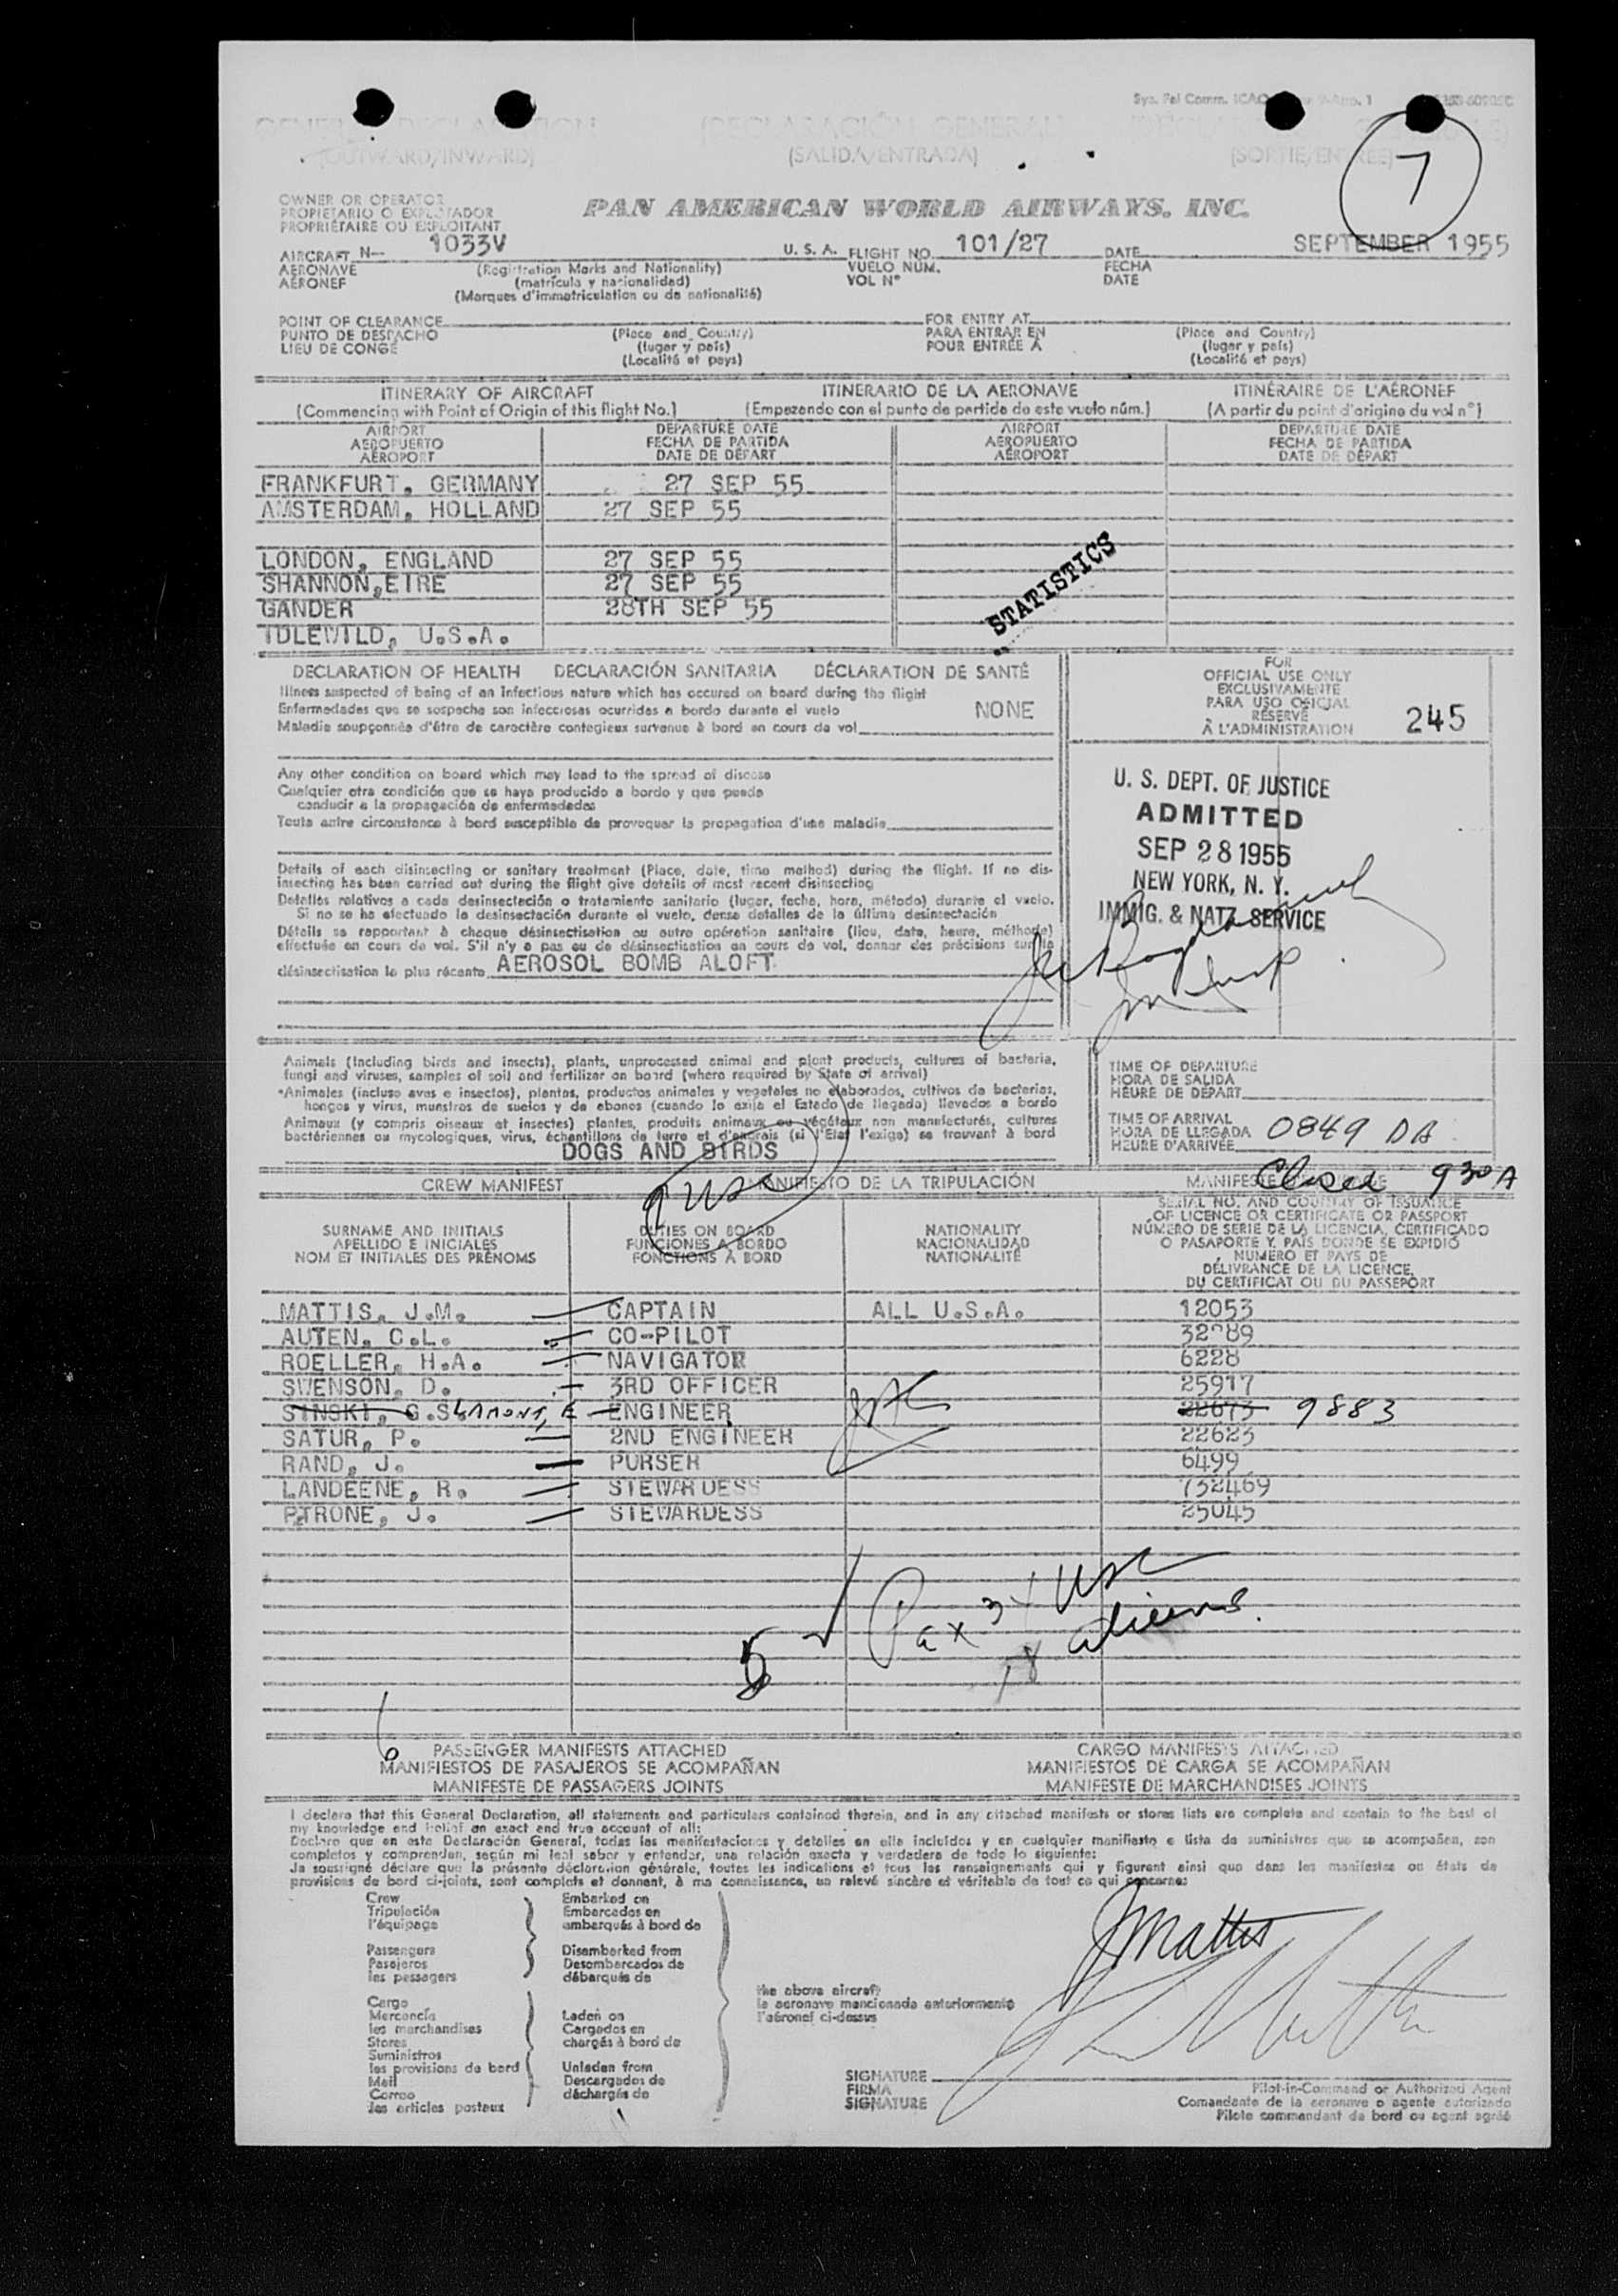 Sys. Fal Comm. ICAO
(OUTWARD/INWARD) (SALIDA/ENTRADA) (SORTIE/ENTRÉE)
7
OWNER OR OPERATOR
PROPIETARIO O EXPLOTADOR
PROPRIÉTAIRE OU EXPLOITANT
PAN AMERICAN WORLD AIRWAYS, INC.
AIRCRAFT N- 1033V U. S. A. FLIGHT NO. 101/27 DATE SEPTEMBER 1955
AERONAVE (Registration Marks and Nationality) VUELO NÚM. FECHA
AÉRONEF (matrícula y nacionalidad) VOL N° DATE
(Marques d'immatriculation ou de nationalité)
POINT OF CLEARANCE FOR ENTRY AT
PUNTO DE DESPACHO (Place and Country) PARA ENTRAR EN (Place and Country)
LIEU DE CONGÉ (lugar y país) POUR ENTRÉE À (lugar y país)
(Localité et pays) (Localité et pays)
ITINERARY OF AIRCRAFT ITINERARIO DE LA AERONAVE ITINÉRAIRE DE L'AÉRONEF
(Commencing with Point of Origin of this flight No.) (Empezando con el punto de partida de este vuelo núm.) (A partir du point d'origine du vol n°)
AIRPORT DEPARTURE DATE AIRPORT DEPARTURE DATE
AEROPUERTO FECHA DE PARTIDA AEROPUERTO FECHA DE PARTIDA
AÉROPORT DATE DE DÉPART AÉROPORT DATE DE DÉPART
FRANKFURT, GERMANY 27 SEP 55
AMSTERDAM, HOLLAND 27 SEP 55
LONDON, ENGLAND 27 SEP 55
SHANNON, EIRE 27 SEP 55
GANDER 28TH SEP 55
IDLEWILD, U.S.A.
STATISTICS
DECLARATION OF HEALTH DECLARACIÓN SANITARIA DÉCLARATION DE SANTÉ
Illness suspected of being of an infectious nature which has occured on board during the flight
Enfermedades que se sospecha son infecciosas ocurridas a bordo durante el vuelo NONE
Maladie soupçonnée d'être de caractère contagieux survenue à bord en cours de vol
Any other condition on board which may lead to the spread of disease
Cualquier otra condición que se haya producido a bordo y que pueda
conducir a la propagación de enfermedades
Toute antre circonstance à bord susceptible de provoquer la propagation d'une maladie
Details of each disinsecting or sanitary treatment (Place, date, time method) during the flight. If no dis-
insecting has been carried out during the flight give details of most recent disinsecting
Detalles relativos a cada desinsectación o tratamiento sanitario (lugar, fecha, hora, método) durante el vuelo.
Si no se ha efectuado la desinsectación durante el vuelo, dense detalles de la última desinsectación
Détails se rapportant à chaque désinsectisation ou autre opération sanitaire (lieu, date, heure, méthode)
effectuée en cours de vol. S'il n'y a pas eu de désinsectisation en cours de vol, donner des précisions sur la
désinsectisation la plus récente AEROSOL BOMB ALOFT
FOR
OFFICIAL USE ONLY
EXCLUSIVAMENTE
PARA USO OFICIAL
RÉSERVÉ
À L'ADMINISTRATION
245
U. S. DEPT. OF JUSTICE
ADMITTED
SEP 28 1955
NEW YORK, N. Y.
IMMIG. & NATZ. SERVICE
Animals (including birds and insects), plants, unprocessed animal and plant products, cultures of bacteria,
fungi and viruses, samples of soil and fertilizer on board (where required by State of arrival)
*Animales (incluso aves e insectos), plantas, productos animales y vegetales no elaborados, cultivos de bacterias,
hongos y virus, munstras de suelos y de abonos (cuando lo exija el Estado de llegada) llevados a bordo
Animaux (y compris oiseaux et insectes) plantes, produits animaux ou végétaux non manufacturés, cultures
bactériennes ou mycologiques, virus, échantillons de terre et d'engrais (si l'État l'exige) se trouvant à bord
DOGS AND BIRDS
TIME OF DEPARTURE
HORA DE SALIDA
HEURE DE DÉPART
TIME OF ARRIVAL
HORA DE LLEGADA 0849 DA
HEURE D'ARRIVÉE
CREW MANIFEST MANIFIESTO DE LA TRIPULACIÓN Closed 930 A
9 USC
SURNAME AND INITIALS
APELLIDO E INICIALES
NOM ET INITIALES DES PRÉNOMS
DUTIES ON BOARD
FUNCIONES A BORDO
FONCTIONS À BORD
NATIONALITY
NACIONALIDAD
NATIONALITÉ
SERIAL NO. AND COUNTRY OF ISSUANCE
OF LICENCE OR CERTIFICATE OR PASSPORT
NÚMERO DE SERIE DE LA LICENCIA, CERTIFICADO
O PASAPORTE Y, PAÍS DONDE SE EXPIDIÓ
NUMÉRO ET PAYS DE
DÉLIVRANCE DE LA LICENCE,
DU CERTIFICAT OU DU PASSEPORT
MATTIS, J.M. CAPTAIN ALL U.S.A. 12053
AUTEN, C.L. CO-PILOT
ROELLER, H.A. NAVIGATOR 6228
SWENSON, D. 3RD OFFICER 25917
SINSKI, G.S. LAMONT, E ENGINEER 22673 9883
SATUR, P. 2ND ENGINEER 22623
RAND, J. PURSER 6499
LANDEENE, R. STEWARDESS 732469
PETRONE, J. STEWARDESS 25045
5 Pax 34 USC
18 aliens.
6
PASSENGER MANIFESTS ATTACHED CARGO MANIFESTS ATTACHED
MANIFIESTOS DE PASAJEROS SE ACOMPAÑAN MANIFIESTOS DE CARGA SE ACOMPAÑAN
MANIFESTE DE PASSAGERS JOINTS MANIFESTE DE MARCHANDISES JOINTS
I declare that this General Declaration, all statements and particulars contained therein, and in any attached manifests or stores lists are complete and contain to the best of
my knowledge and belief an exact end true account of all:
Declaro que en esta Declaración General, todas las manifestaciones y detalles en ella incluídos y en cualquier manifiesto e lista de suministros que se acompañen, son
completos y comprenden, según mi leal saber y entender, una relación exacta y verdadera de todo lo siguiente:
Je soussigné déclare que la présente déclaration générale, toutes les indications et tous les renseignements qui y figurent ainsi que dans les manifestes ou états de
provisions de bord ci-joints, sont complets et donnent, à ma connaissance, un relevé sincère et véritable de tout ce qui concerne:
Crew Embarked on
Tripulación Embarcados en
l'équipage embarqués à bord de
Passengers Disembarked from
Pasajeros Desembarcados de
les passagers débarqués de
Cargo
Mercancía Laden on
les marchandises Cargados en
Stores chargés à bord de
Suministros
les provisions de bord Unladen from
Mail Descargados de
Correo déchargés de
les articles postaux
the above aircraft
la aeronave mencionada anteriormente
l'aéronef ci-dessus
J Mattis
SIGNATURE
FIRMA
SIGNATURE
Pilot-in-Command or Authorized Agent
Comandante de la aeronave o agente autorizado
Pilote commandant de bord ou agent agréé